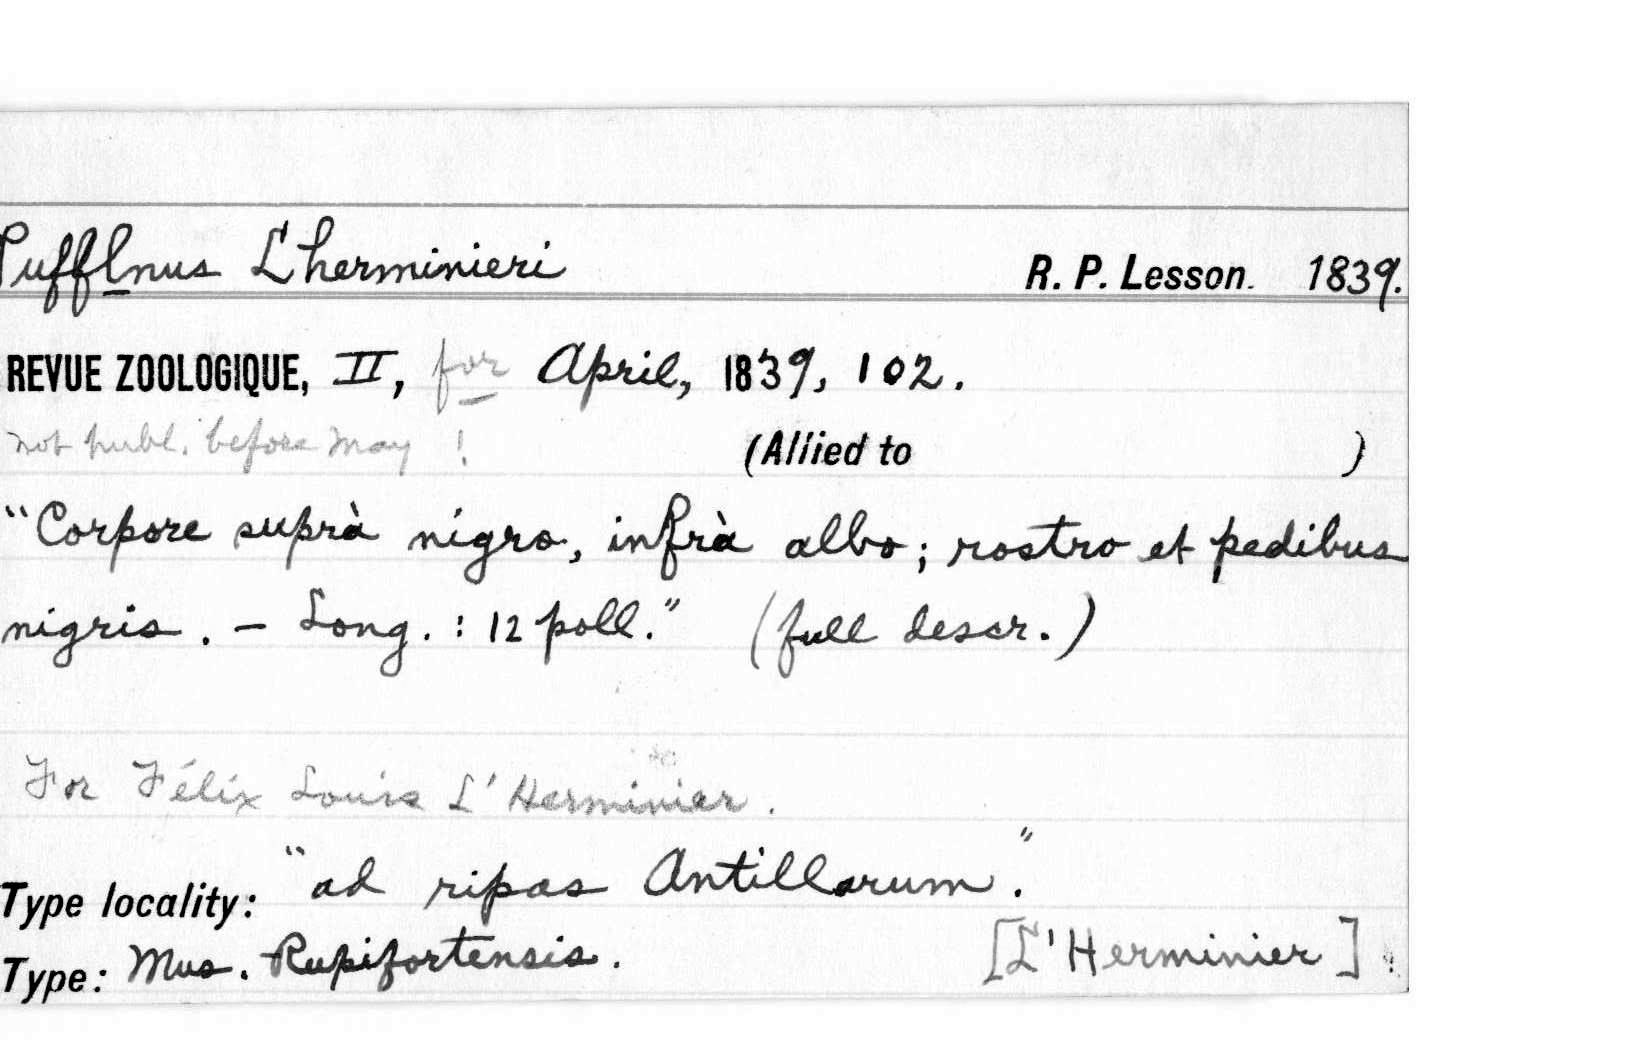 Pufflnus L'herminieri R. P. Lesson. 1839.
REVUE ZOOLOGIQUE, II, for April, 1839, 102.
not publ. before May ! (Allied to )
"Corpore suprà nigro, infrà albo; rostro et pedibus
nigris. — Long. : 12 poll." (full descr.)
For Félix Louis L'Herminier.
Type locality: "ad ripas Antillarum".
Type: Mus. Rupifortensis. [L'Herminier].